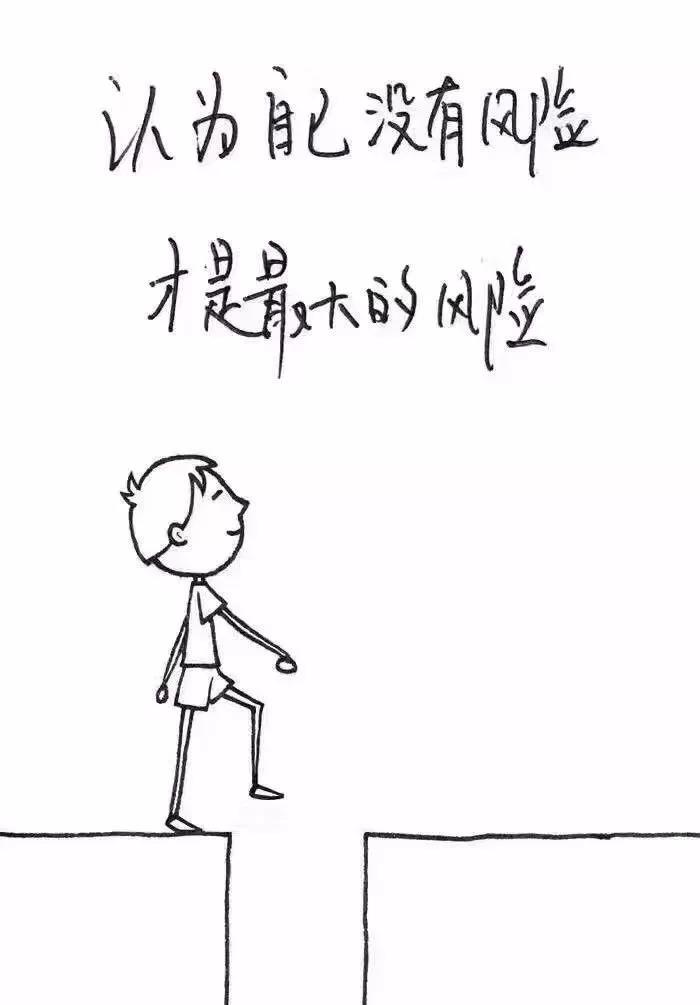 认为自己没有风险
才是最大的风险